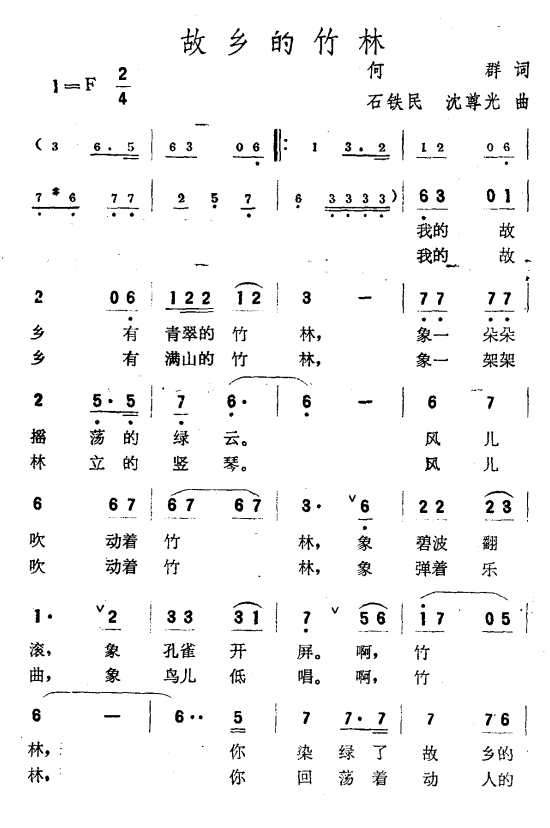 故乡的竹林
1=F 2/4
何 群 词
石铁民 沈尊光 曲
( 3 6·5 | 63 06 ‖: 1 3·2 | 12 06 |
7 #6 77 | 2 5 7 | 6 3333) | 63 01 |
我的 故
我的 故
2 06 | 122 12 | 3 — | 77 77 |
乡 有 青翠的 竹 林, 象一 朵朵
乡 有 满山的 竹 林, 象一 架架
2 5·5 | 7 6· | 6 — | 6 7 |
摇 荡的 绿 云。 风 儿
林 立的 竖 琴。 风 儿
6 67 | 67 67 | 3· ∨6 | 22 23 |
吹 动着 竹 林, 象 碧波 翻
吹 动着 竹 林, 象 弹着 乐
1· ∨2 | 33 31 | 7 ∨56 | 17 05 |
滚, 象 孔雀 开 屏。 啊, 竹
曲, 象 鸟儿 低 唱。 啊, 竹
6 — | 6·· 5 | 7 7·7 | 7 76 |
林, 你 染 绿了 故 乡的
林, 你 回 荡着 动 人的